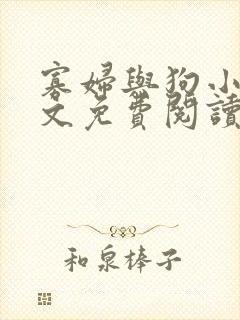 寡婦與狗小
文免費閱讀
和泉棒子